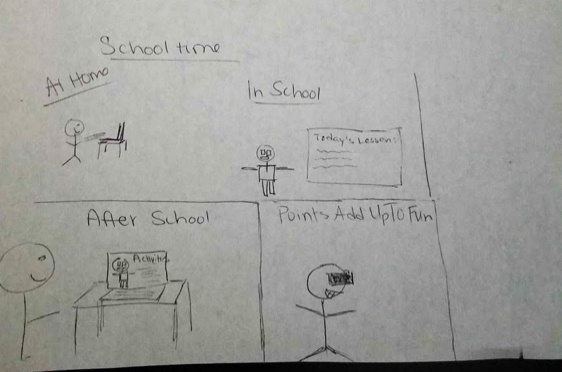 School time
At Home
In School
Today's Lesson:
After School
Points Add UpTo Fun